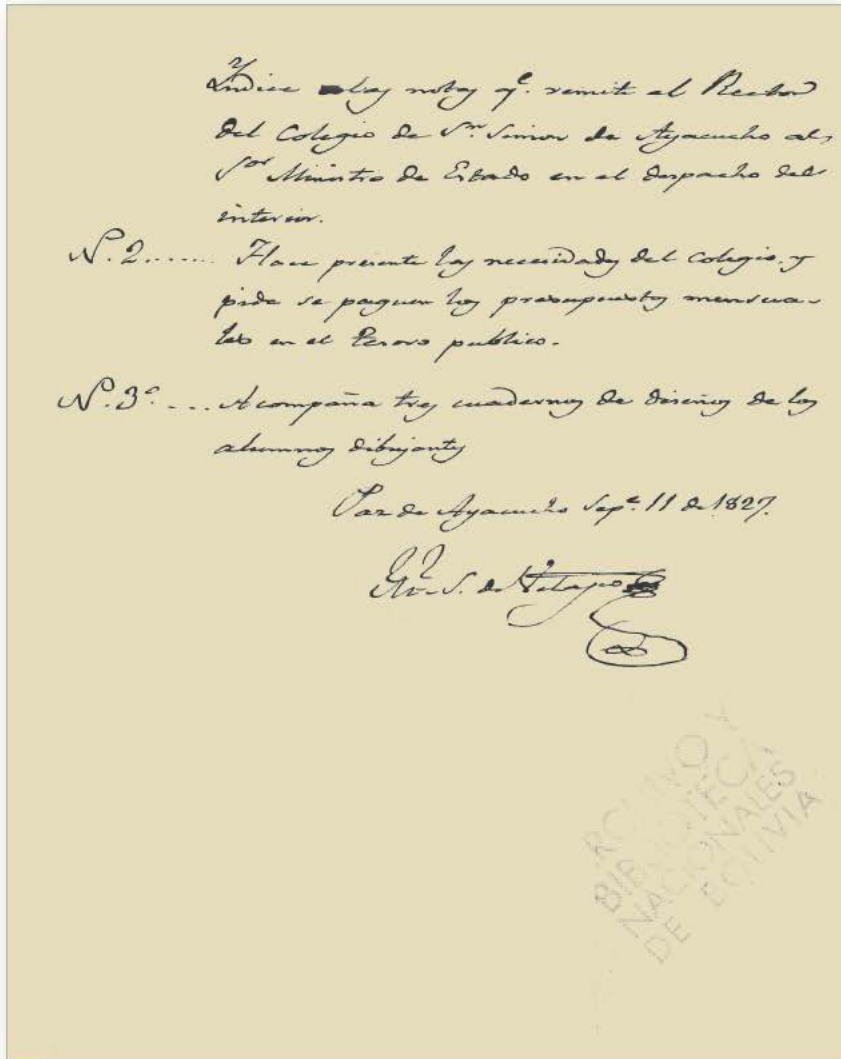 Yndice de las notas q.e remite el Rector
del Colegio de Sn. Simon de Ayacucho al
Sor Ministro de Estado en el despacho del
interior.
N. 2....... Hace presente las necesidades del Colegio, y
pide se paguen los presupuestos mensua-
les en el tesoro publico.
N. 3º. ... Acompaña tres cuadernos de diseños de los
alumnos dibujantes
Paz de Ayacucho Sepe. 11 de 1827.
S. de
ARCHIVO Y
BIBLIOTECA
NACIONALES
DE BOLIVIA